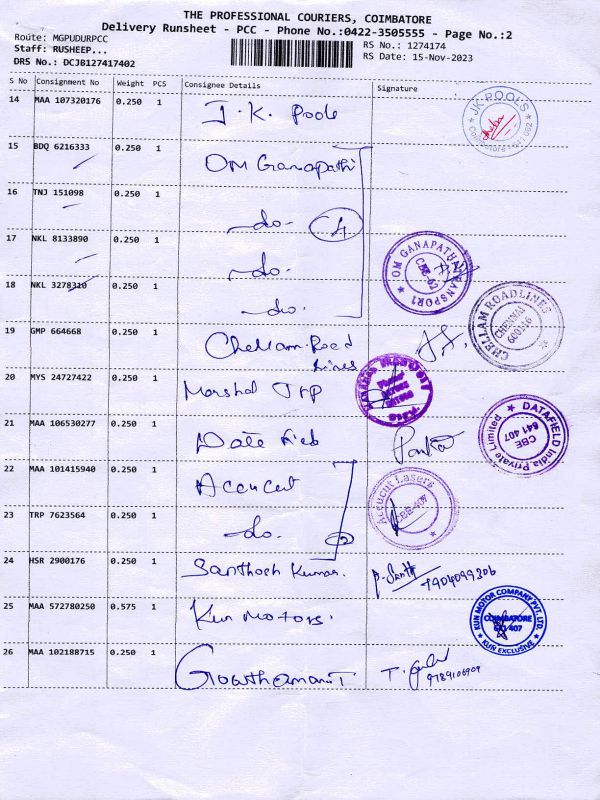 THE PROFESSIONAL COURIERS, COIMBATORE
Delivery Runsheet - PCC - Phone No.:0422-3505555 - Page No.:2
Route: MGPUDURPCC
RS No.: 1274174
Staff: RUSHEEP...
RS Date: 15-Nov-2023
DRS No.: DCJB127417402
S No Consignment No Weight PCS Consignee Details Signature
14 MAA 107320176 0.250 1 J.K. Pools
JK POOL'S
15 BDQ 6216333 0.250 1 OM Ganapathi
16 TNJ 151098 0.250 1 -do- 4
17 NKL 8133890 0.250 1 -do-
OM GANAPATHI TRANSPORT
CBE-62
18 NKL 3278310 0.250 1 -do-
CHELLAM ROADLINES
CHENNAI
19 GMP 664668 0.250 1 Chellam Road
Lines
20 MYS 24727422 0.250 1 Marshal
21 MAA 106530277 0.250 1 Date Field
DATAFIELD India Private Limited
CBE
641 407
22 MAA 101415940 0.250 1 Accucut
Accucut Lasers
CBE-407
23 TRP 7623564 0.250 1 -do- 2
24 HSR 2900176 0.250 1 Santhosh Kumar.
7904099306
25 MAA 572780250 0.575 1 Kun Motors.
KUN MOTOR COMPANY PVT. LTD.
COIMBATORE
641 407
KUN EXCLUSIVE
26 MAA 102188715 0.250 1 Gowthaman.T
9789106909